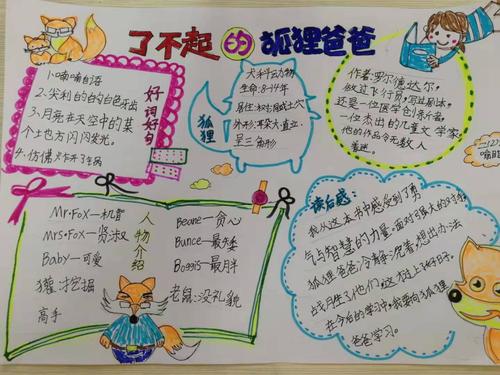 了不起的狐狸爸爸
1.喃喃自语
2.尖利的白的白色牙齿
3.月亮在天空中的某
个土也方闪闪发光。
4.仿佛
好词好句
犬科动物
生命:8-14年
居住:树洞或土穴
外形:耳朵大,直立,
呈三角形
狐狸
作者:罗尔德达尔,
做过飞行员,写过剧本,
还是一位医学创新者。
一位杰出的儿童文学家,
他的作品令无数人
着迷。
人物介绍
Mr·Fox—机智
Mrs·Fox—贤淑
Baby—可爱
獾:挖掘
高手
Beane—贪心
Bunce—最矮
Boggis—最月半
老鼠:没礼貌
读后感:
我从这本书中感受到了勇
气与智慧的力量。面对强大的
狐狸爸爸冷静沉着,想出办法
战月生了他们,
在今后的学习中,我要向狐狸
爸爸学习。